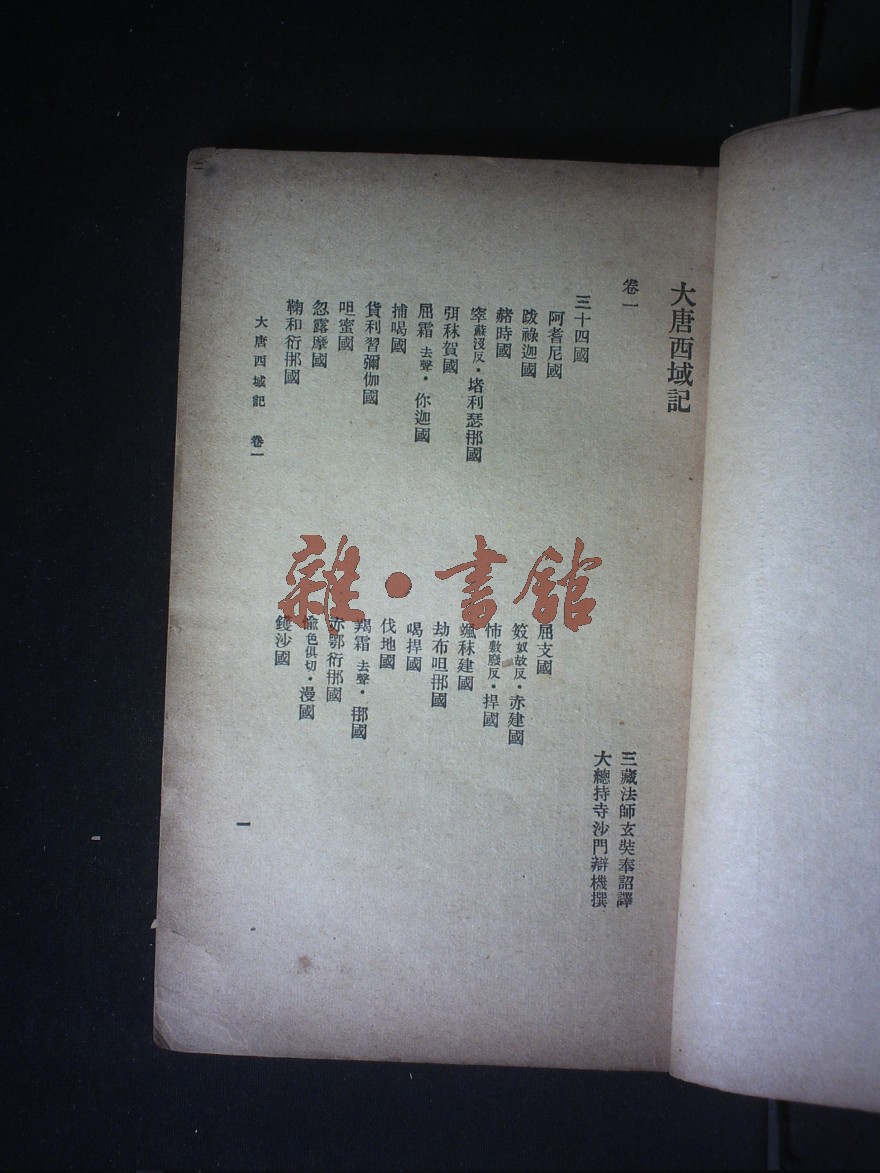 大唐西域記
卷一
三藏法師玄奘奉詔譯
大總持寺沙門辯機撰
三十四國
阿耆尼國
屈支國
跋祿迦國
笯奴故反·赤建國
赭時國
怖敷廢反·捍國
窣蘇沒反·堵利瑟那國
颯秣建國
弭秣賀國
劫布呾那國
屈霜去聲·你迦國
喝捍國
捕喝國
伐地國
貨利習彌伽國
羯霜去聲·那國
呾蜜國
赤鄂衍那國
忽露摩國
愉色俱切·漫國
鞠和衍那國
鑊沙國
大唐西域記 卷一
一
雜·書館